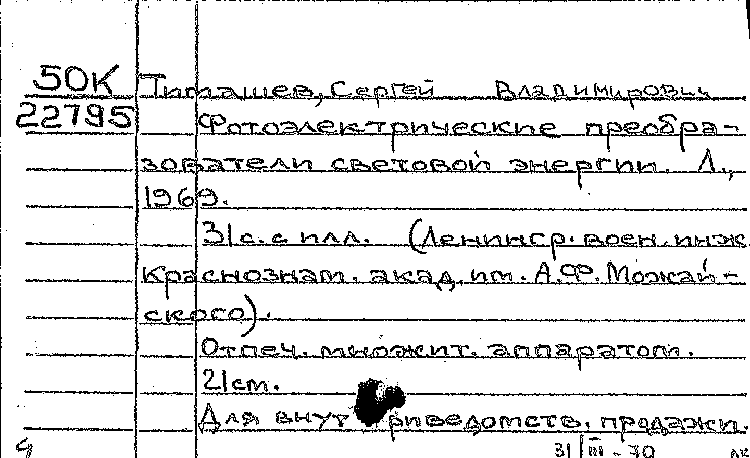 50К Тимашев, Сергей Владимирович
22795 Фотоэлектрические преобра-
зователи световой энергии. Л.,
1969.
31с. с илл. (Ленингр. воен. инж.
Краснознам. акад. им. А.Ф. Можай-
ского).
Отпеч. множит. аппаратом.
21см.
Для внут риведомств. продажи.
31/III-70